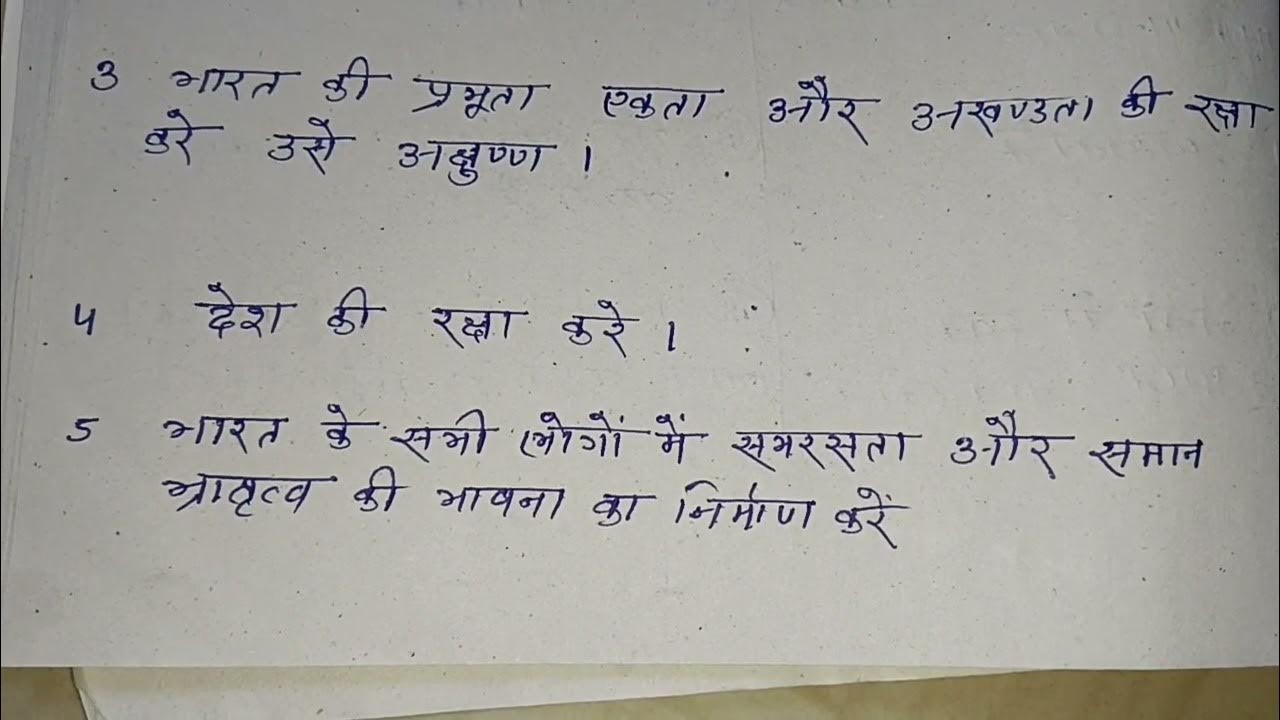 3 भारत की प्रभूता एकता और अखण्डता की रक्षा
करे उसे अक्षुण्ण ।
4 देश की रक्षा करे ।
5 भारत के सभी लोगों में समरसता और समान
भ्रातृत्व की भावना का निर्माण करें